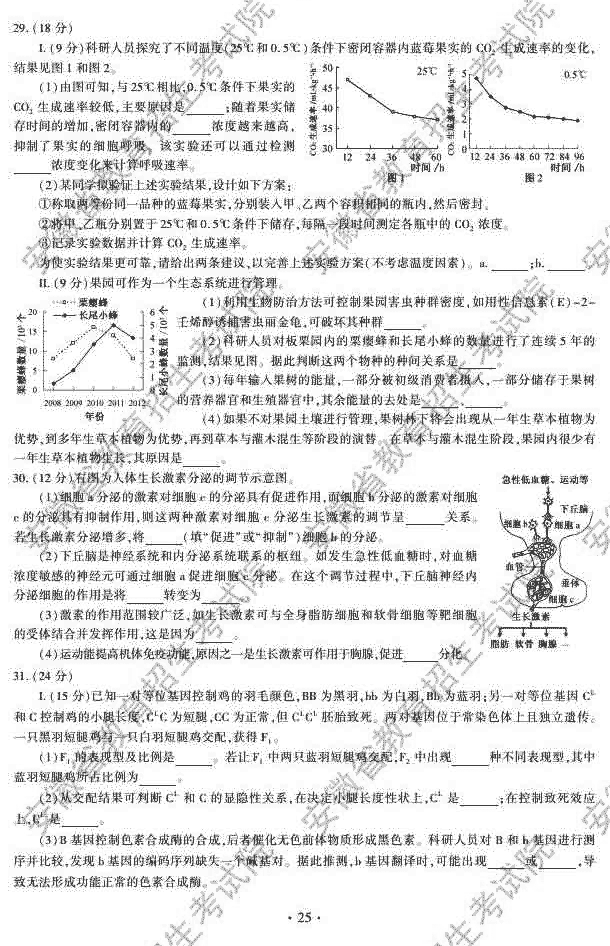 29.(18分)
I.(9分)科研人员探究了不同温度(25℃和0.5℃)条件下密闭容器内蓝莓果实的CO₂生成速率的变化,
结果见图1和图2。
(1)由图可知,与25℃相比,0.5℃条件下果实的
CO₂生成速率较低,主要原因是____;随着果实储
存时间的增加,密闭容器内的____浓度越来越高,
抑制了果实的细胞呼吸。该实验还可以通过检测
____浓度变化来计算呼吸速率。
CO₂生成速率/mL·kg⁻¹·h⁻¹
50
45
40
35
30
25℃
12 24 36 48 60
时间/h
图1
CO₂生成速率/mL·kg⁻¹·h⁻¹
5
4
3
2
1
0
0.5℃
12 24 36 48 60 72 84 96
时间/h
图2
(2)某同学拟验证上述实验结果,设计如下方案:
①称取两等份同一品种的蓝莓果实,分别装入甲、乙两个容积相同的瓶内,然后密封。
②将甲、乙瓶分别置于25℃和0.5℃条件下储存,每隔一段时间测定各瓶中的CO₂浓度。
③记录实验数据并计算CO₂生成速率。
为使实验结果更可靠,请给出两条建议,以完善上述实验方案(不考虑温度因素)。a.____;b.____。
II.(9分)果园可作为一个生态系统进行管理。
栗瘿蜂
长尾小蜂
栗瘿蜂数量/10³个
20
15
10
5
0
长尾小蜂数量/10³个
6
5
4
3
2
1
0
2008 2009 2010 2011 2012
年份
(1)利用生物防治方法可控制果园害虫种群密度,如用性信息素(E)-2-
壬烯醇诱捕害虫丽金龟,可破坏其种群____。
(2)科研人员对板栗园内的栗瘿蜂和长尾小蜂的数量进行了连续5年的
监测,结果见图。据此判断这两个物种的种间关系是____。
(3)每年输入果树的能量,一部分被初级消费者摄入,一部分储存于果树
的营养器官和生殖器官中,其余能量的去处是____、____。
(4)如果不对果园土壤进行管理,果树林下将会出现从一年生草本植物为
优势,到多年生草本植物为优势,再到草本与灌木混生等阶段的演替。在草本与灌木混生阶段,果园内很少有
一年生草本植物生长,其原因是____。
30.(12分)右图为人体生长激素分泌的调节示意图。
(1)细胞a分泌的激素对细胞c的分泌具有促进作用,而细胞b分泌的激素对细胞
c的分泌具有抑制作用,则这两种激素对细胞c分泌生长激素的调节呈____关系。
若生长激素分泌增多,将____(填“促进”或“抑制”)细胞b的分泌。
(2)下丘脑是神经系统和内分泌系统联系的枢纽。如发生急性低血糖时,对血糖
浓度敏感的神经元可通过细胞a促进细胞c分泌。在这个调节过程中,下丘脑神经内
分泌细胞的作用是将____转变为____。
(3)激素的作用范围较广泛,如生长激素可与全身脂肪细胞和软骨细胞等靶细胞
的受体结合并发挥作用,这是因为____。
(4)运动能提高机体免疫功能,原因之一是生长激素可作用于胸腺,促进____分化。
急性低血糖、运动等
下丘脑
细胞b
细胞a
血管
垂体
细胞c
生长激素
脂肪 软骨 胸腺 …
31.(24分)
I.(15分)已知一对等位基因控制鸡的羽毛颜色,BB为黑羽,bb为白羽,Bb为蓝羽;另一对等位基因Cᴸ
和C控制鸡的小腿长度,CᴸC为短腿,CC为正常,但CᴸCᴸ胚胎致死。两对基因位于常染色体上且独立遗传。
一只黑羽短腿鸡与一只白羽短腿鸡交配,获得F₁。
(1)F₁的表现型及比例是____。若让F₁中两只蓝羽短腿鸡交配,F₂中出现____种不同表现型,其中
蓝羽短腿鸡所占比例为____。
(2)从交配结果可判断Cᴸ和C的显隐性关系,在决定小腿长度性状上,Cᴸ是____;在控制致死效应
上,Cᴸ是____。
(3)B基因控制色素合成酶的合成,后者催化无色前体物质形成黑色素。科研人员对B和b基因进行测
序并比较,发现b基因的编码序列缺失一个碱基对。据此推测,b基因翻译时,可能出现____或____,导
致无法形成功能正常的色素合成酶。
·25·
安徽省教育招生考试院